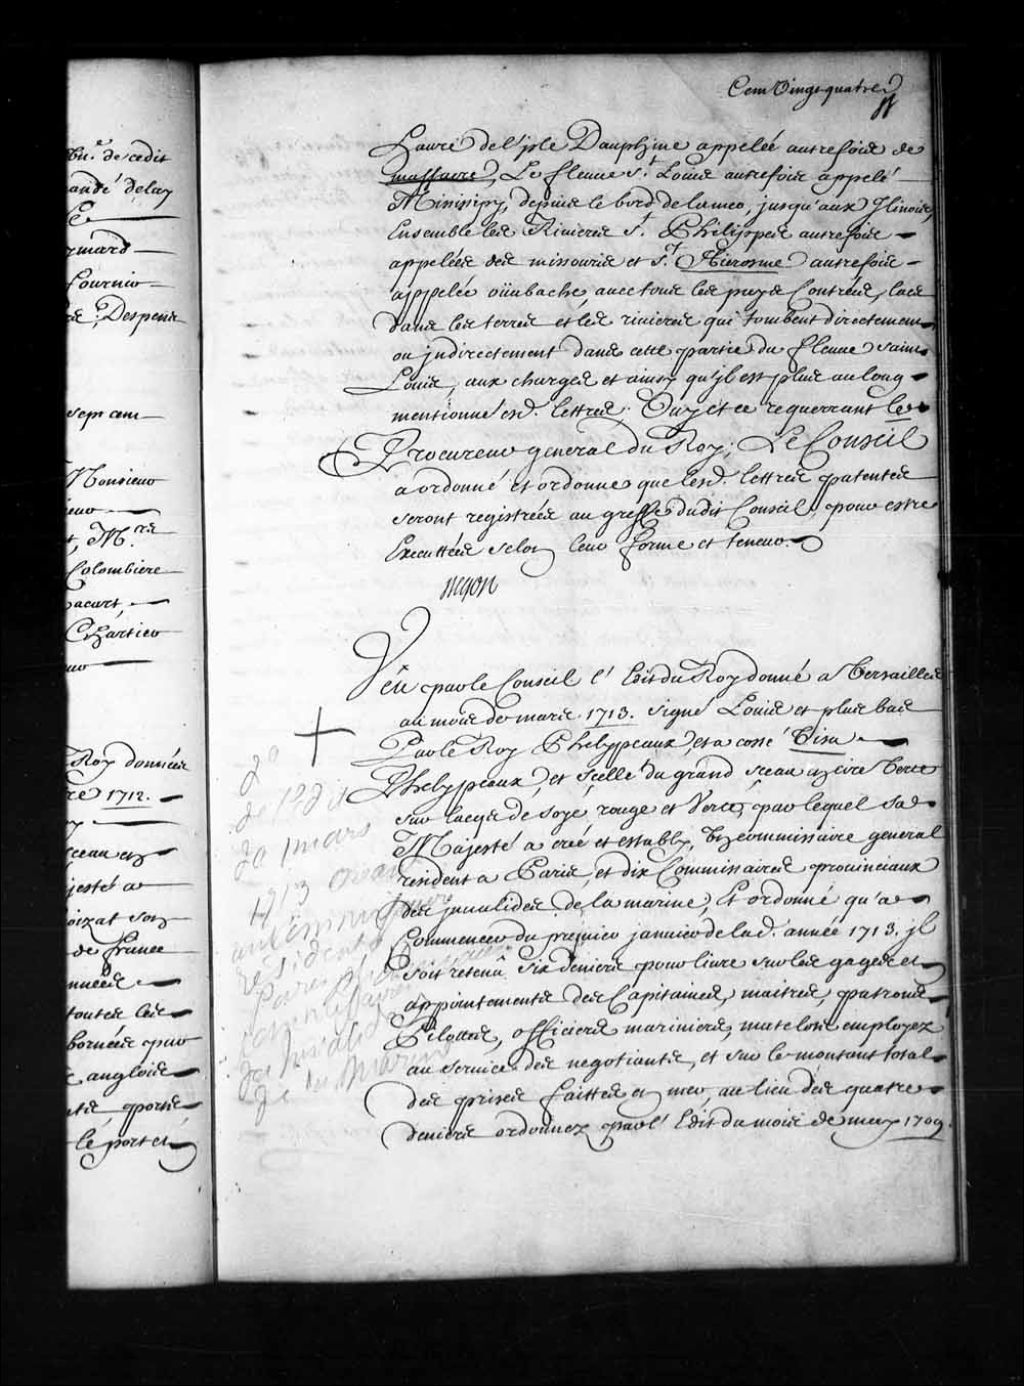 Cent Vingt quatre
havre de l'jsle Dauphine appelée autrefois de
massacre, Le fleuve S.t Louis autrefois appelé
Missisipy, depuis le bord de la mer, jusqu'aux Jlinois,
Ensemble les Rivieres S.t Philippes autrefois
appelées des missouris et S.t Hierosme autrefois
appelée oüabache, avec tous les pays Contrées, lacs
dans les terres et les rivieres qui tombent directement
ou jndirectement dans cette partie du fleuve saint
Louis, aux charges et ainsy qu'jl est plus au long
mentionné esd. lettres. Ouy et ce requerrant le
Procureur general du Roy; Le Conseil
a ordonné et ordonne que lesd. lettres patentes
seront registrées au greffe dudit Conseil, pour estre
Executtées selon leur forme et teneur.
Veu par le Conseil l'Edit du Roy donné a Versailles
au mois de mars 1713. signé Louis et plus bas
Par le Roy Phelyppeaux, et a costé Visa
Phelyppeaux, et scellé du grand sceau en cire Verte
sur lacqs de soye rouge et Verte, par lequel sa
Majesté a creé et estably, Un commissaire general
resident a Paris, et dix Commissaires provinciaux
des jnvalides de la marine, Et ordonné qu'a
Commencer du premier janvier de lad. année 1713. jl
soit retenû six deniers pour livre sur les gages et
appointements des Capitaines, maitres, patrons
Pilottes, officiers mariniers, matelots employez
au service des negotiants, et sur le montant total
des prises faittes en mer, au lieu des quatre
deniers ordonnez par l'Edit du mois de may 1709.
de cedit
delay
Despens
sept cent
Monsieur
Colombiere
Roy données
1712.
sceau en
jesté a
de france
toutes les
bornées par
anglois
mars
1713
resident a
Paris
jnvalides
de la Marine